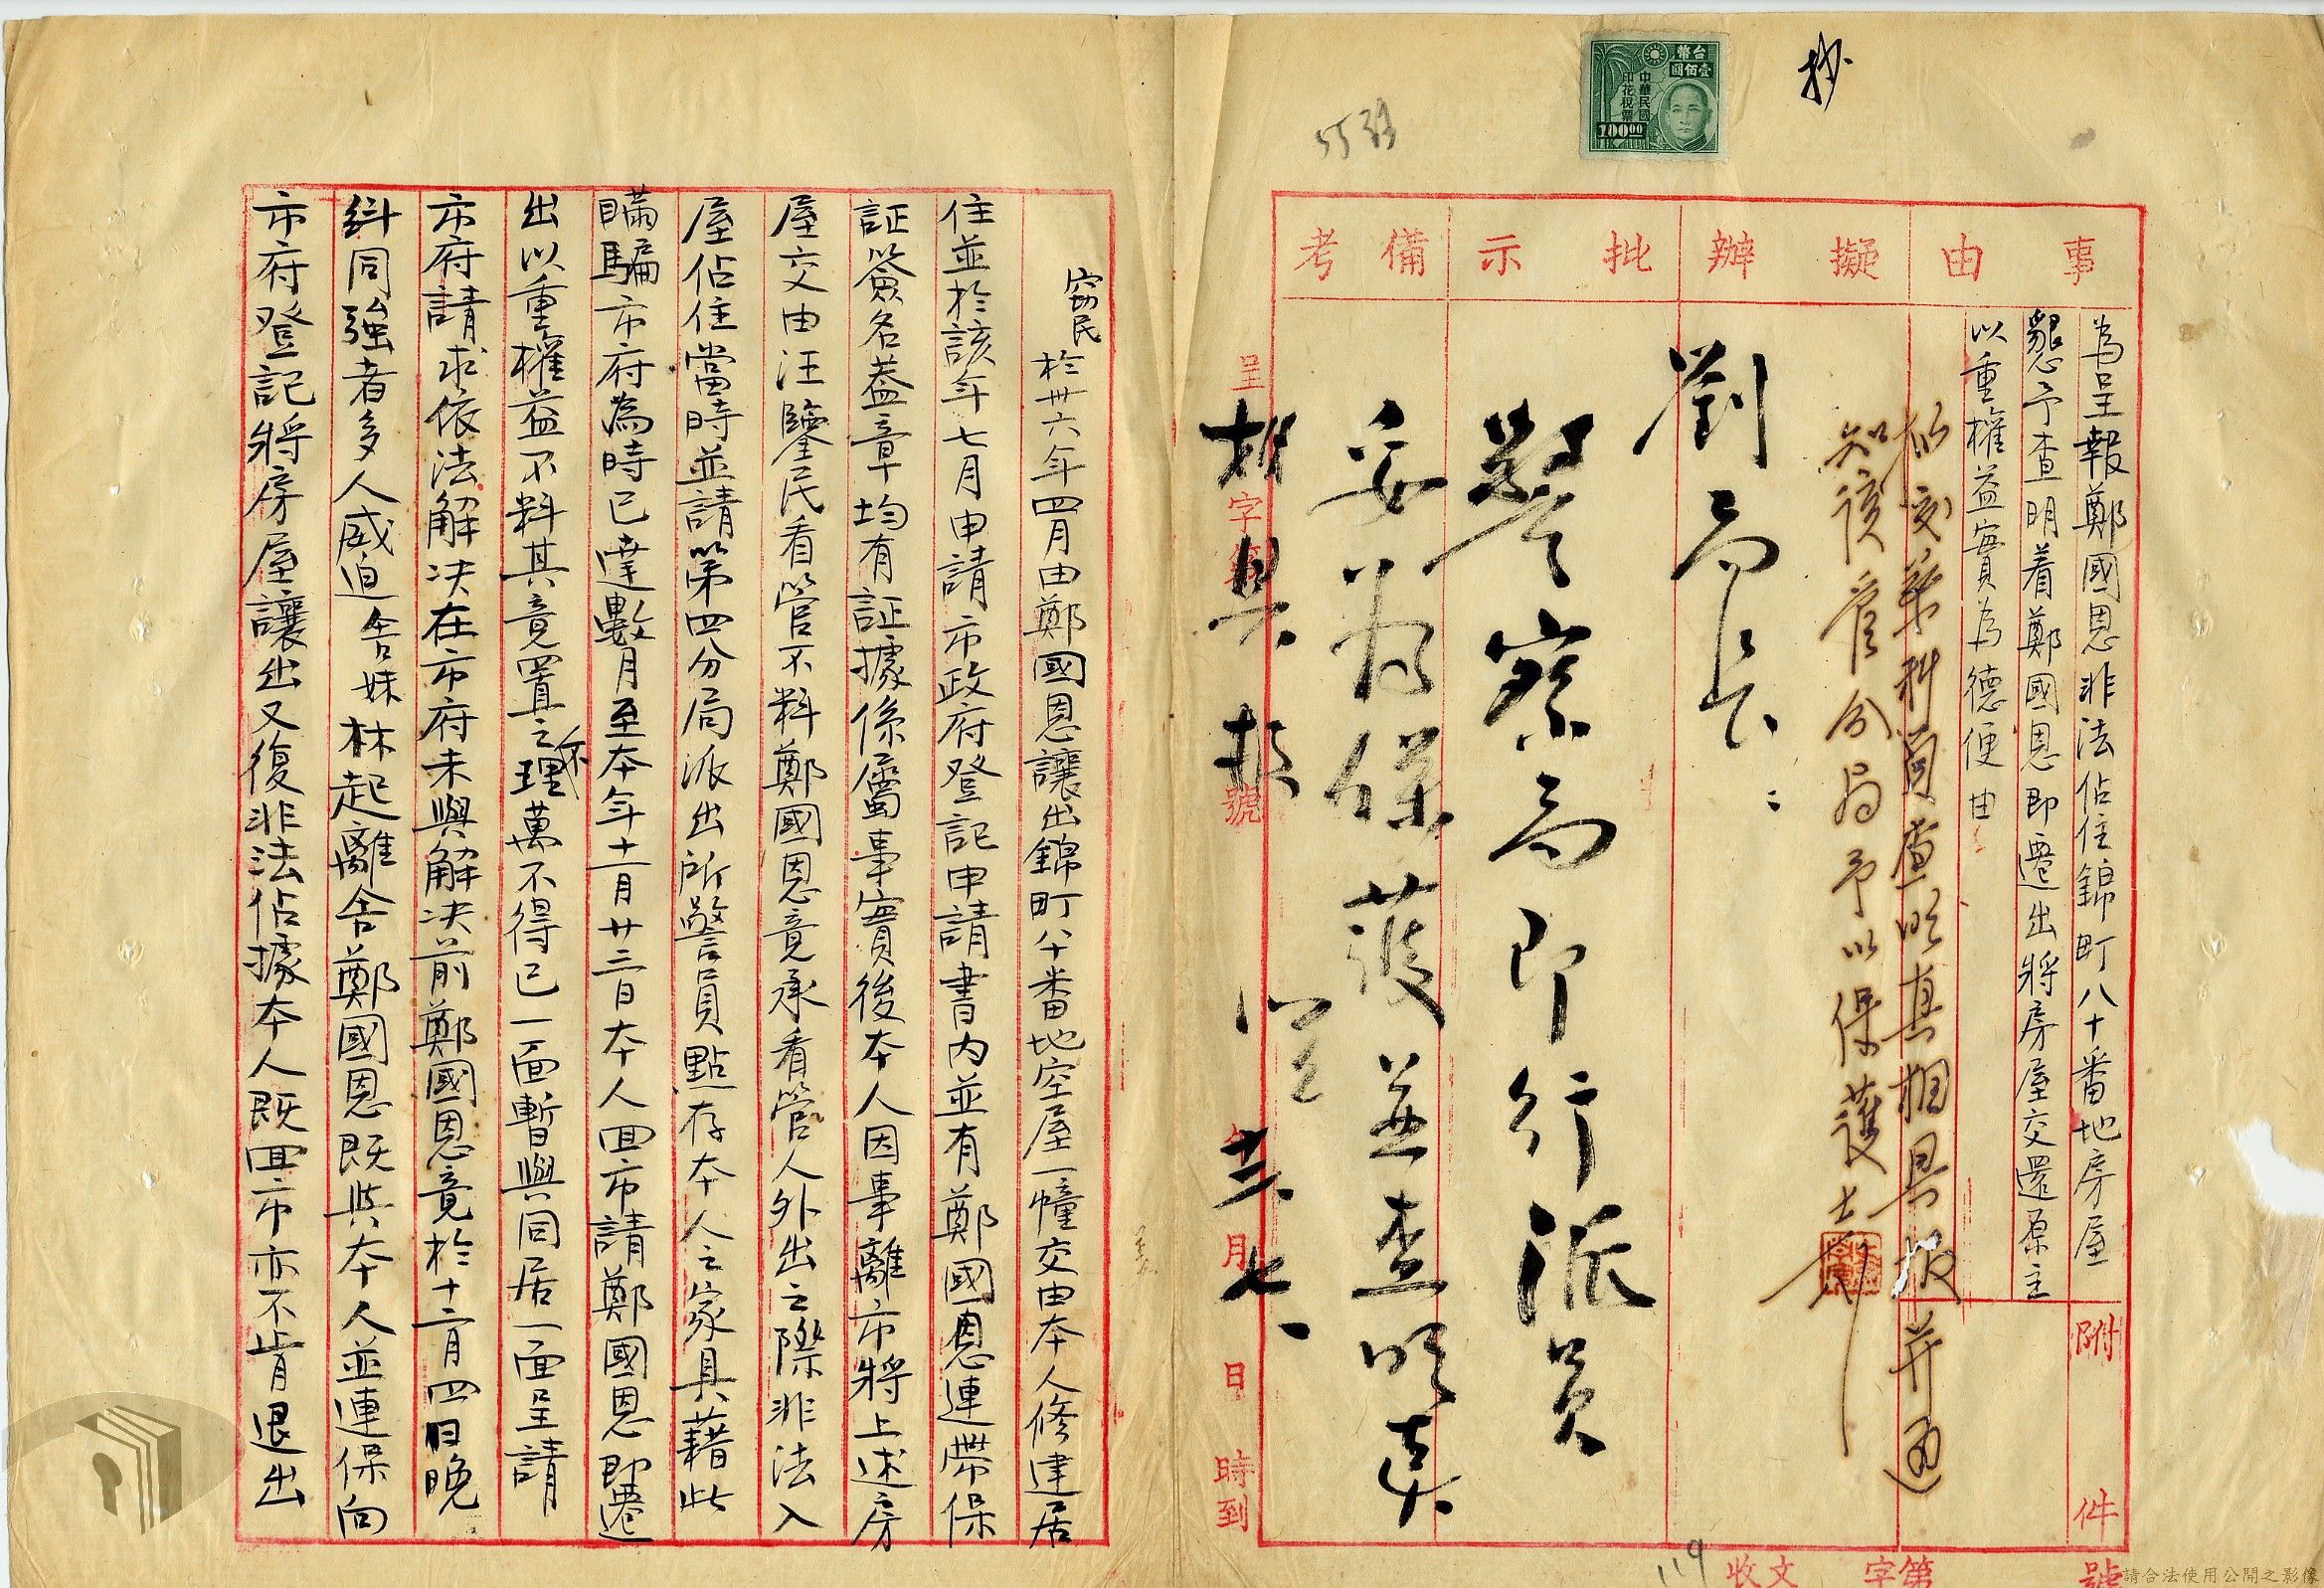 抄
台幣
壹佰圓
中華民國
印花稅票
100.00
55 3
事由
擬辦
批示
備考
為呈報鄭國恩非法佔住錦町八十番地房屋
懇予查明着鄭國恩即遷出將房屋交還原主
以重權益實為德便由
附件
查明真相具報并通
知該管分局予以保護
劉局長:
警察局即行派員
妥為保護並查明真
相具報
十二、七、
呈 字第 號 年 月 日 時到
收文 字第 號
119
竊民於卅六年四月由鄭國恩讓出錦町八十番地空屋一幢交由本人修建居
住並於該年七月申請市政府登記申請書內並有鄭國恩連帶保
証簽名蓋章均有証據係屬事實後本人因事離市將上述房
屋交由汪鑒民看管不料鄭國恩竟承看管人外出之際非法入
屋佔住當時並請第四分局派出所警員點存本人之家具藉此
瞞騙市府為時已達數月至本年十一月廿三日本人回市請鄭國恩即遷
出以重權益不料其竟置之不理萬不得已一面暫與同居一面呈請
市府請求依法解決在市府未與解決前鄭國恩竟於十二月四日晚
糾同強者多人威迫舍妹林起離舍鄭國恩既與本人並連保向
市府登記將房屋讓出又復非法佔據本人既回市亦不肯退出
請合法使用公開之影像